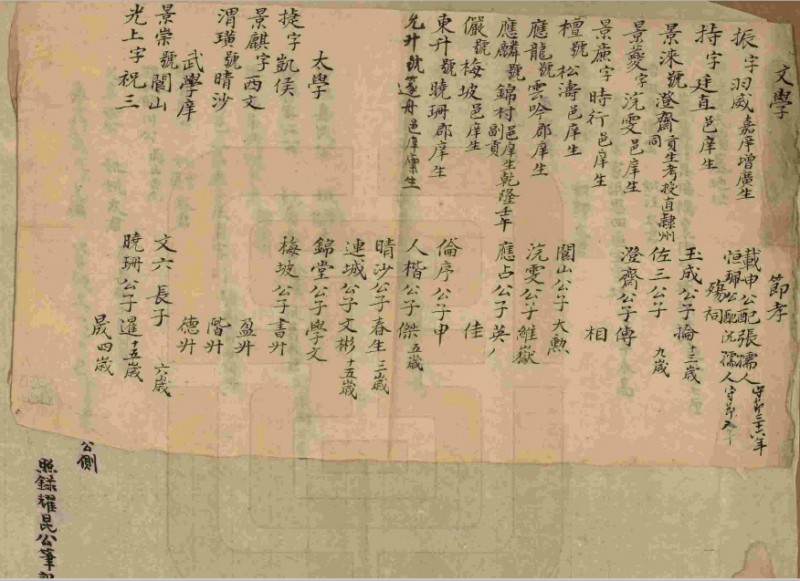 文學
振字羽威嘉庠增廣生
持字廷直邑庠生
景淶號澄齋貢生考授直隸州同
景夔字沇雯邑庠生
景廉字時行邑庠生
檀號松濤邑庠生
應龍號雲吟郡庠生
應麟號錦村邑庠生乾隆壬午副貢
儼號梅坡邑庠生
東升號曉珊郡庠生
允升號邑庠廩生
太學
捷字凱侯
景麒字西文
渭璜號晴沙
武學庠
景崇號閬山
光上字祝三
節孝
載申公配張孺人守節三十八年
恒珮公配沈孺人守節
殤祠
玉成公子掄十三歲
佐三公子九歲
澄齋公子傅
相
閬山公子大勲
沇雯公子維嶽
應占公子英
佳
倫序公子申
人楷公子傑五歲
晴沙公子春生三歲
連城公子文彬十五歲
錦堂公子學文
梅坡公子書升
盈升
階升
德升
文六長子六歲
曉珊公子暹十五歲
晟四歲
公側
照錄耀昆公筆